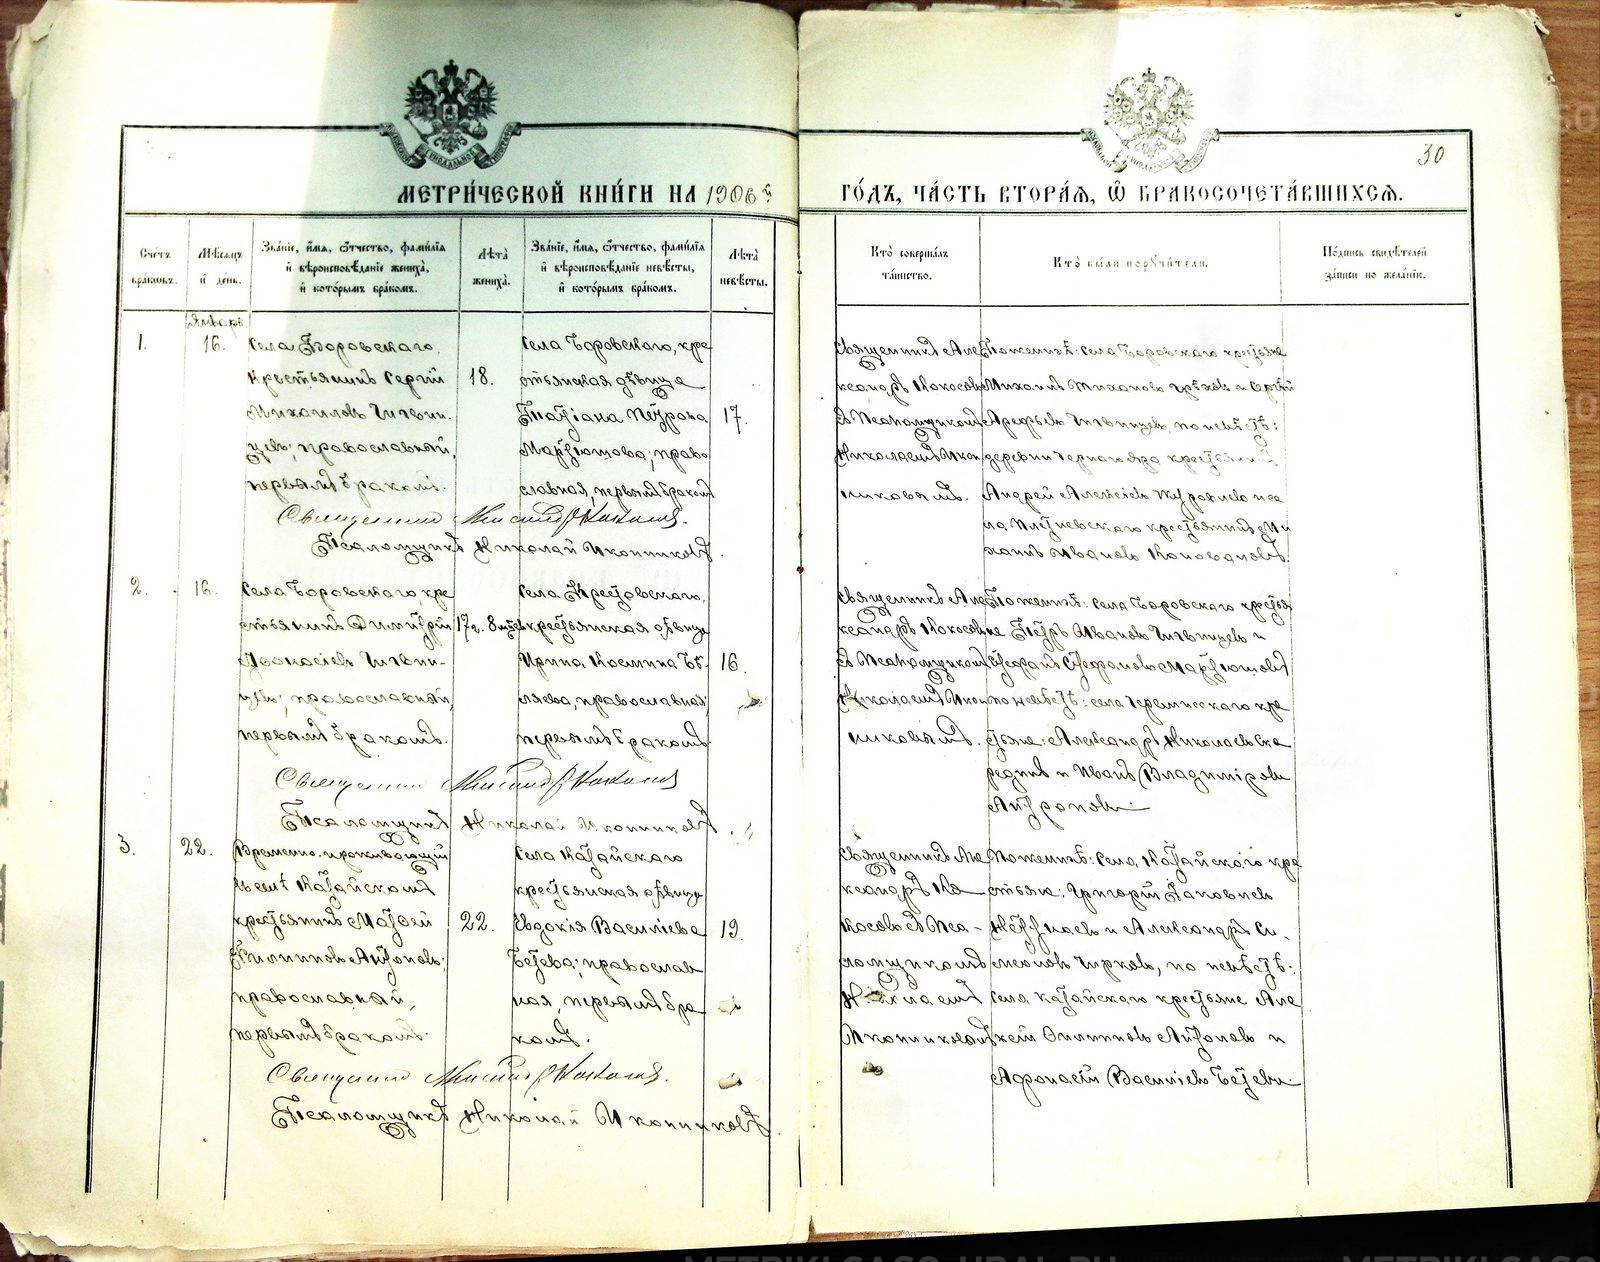 30
МЕТРИ́ЧЕСКОЙ КНИ́ГИ НА 1906й ГО́ДЪ, ЧА́СТЬ ВТОРА́Я, Ѿ БРАКОСОЧЕТА́ВШИХСЯ.
Сче́тъ браковъ.
Мѣсяцъ и҆ де́нь.
Зва́нїе, и҆́мя, ѻ҆́тчество, фами́лїя и҆ вѣроисповѣ́данїе жениха̀, и҆ кото́рымъ бра́комъ.
Лѣта̀ жениха̀.
Зва́нїе, и҆́мя, ѻ҆́тчество, фами́лїя и҆ вѣроисповѣ́данїе невѣ́сты, и҆ кото́рымъ бра́комъ.
Лѣта̀ невѣ́сты.
Кто̀ соверша́лъ та́инство.
Кто̀ бы́ли порꙋчи́тели.
По́дпись свидѣ́телей за́писи по жела́нїю.
Январь
1.
16.
Села Боровскаго,
крестьянинъ Сергій
Михаиловъ
православный,
первымъ бракомъ.
18.
Села Боровскаго, кре
стьянская дѣвица
Татіана Петрова
Мартюшова; право
славная, первымъ бракомъ
17.
Священникъ Але
ксандръ Кокосовъ
съ Псаломщикомъ
Николаемъ Икон
никовымъ.
По женихѣ: села Боровскаго крестьяне
Михаилъ и Сергій
Арефьевъ по невѣстѣ:
деревни Черноярд крестьянинъ
Андрей Алексѣевъ Журавлевъ и се
ла крестьянинъ Ми
хаилъ Ивановъ
Священникъ Александръ Кокосовъ.
Псаломщикъ Николай Иконниковъ.
2.
16.
Села Боровскаго, кре
стьянинъ Димитрій
Аѳонасіевъ
православный,
первымъ бракомъ.
17 л. 8 мѣс
Села Крестовскаго,
крестьянская дѣвица
Ирина Космина Бѣ-
ляева, православная;
первымъ бракомъ
16.
Священникъ Але
ксандръ Кокосовъ
съ Псаломщикомъ
Николаемъ Икон
никовымъ.
По женихѣ: села Боровскаго крестья
не Петръ Ивановъ и
Стефанъ Стефановъ Мартюшовъ
по невѣстѣ: села Черемисскаго кре
стьяне: Александръ Николаевъ Ска
редновъ и Иванъ Владиміровъ
Антроповъ.
Священникъ Александръ Кокосовъ
Псаломщикъ Николай Иконниковъ
3.
22.
Временно-проживающій
въ селѣ Катайскомъ
крестьянинъ Матѳей
Филипповъ Антоновъ;
православный,
первымъ бракомъ.
22.
Села Катайскаго
крестьянская дѣвица
Евдокія Василіева
Бетева; православ
ная, первымъ бра
комъ.
19.
Священникъ Але
ксандръ Ко
косовъ съ Пса-
ломщикомъ
Николаемъ
Иконниковымъ
По женихѣ: села Катайскаго кре
стьяне: Григорій Яковлевъ
и Александръ Си-
меоновъ Чирковъ, по невѣстѣ:
села Катайскаго крестьяне Але
ксѣй Филипповъ Антоновъ и
Афонасій Василіевъ Бетевъ.
Священникъ Александръ Кокосовъ.
Псаломщикъ Николай Иконниковъ.